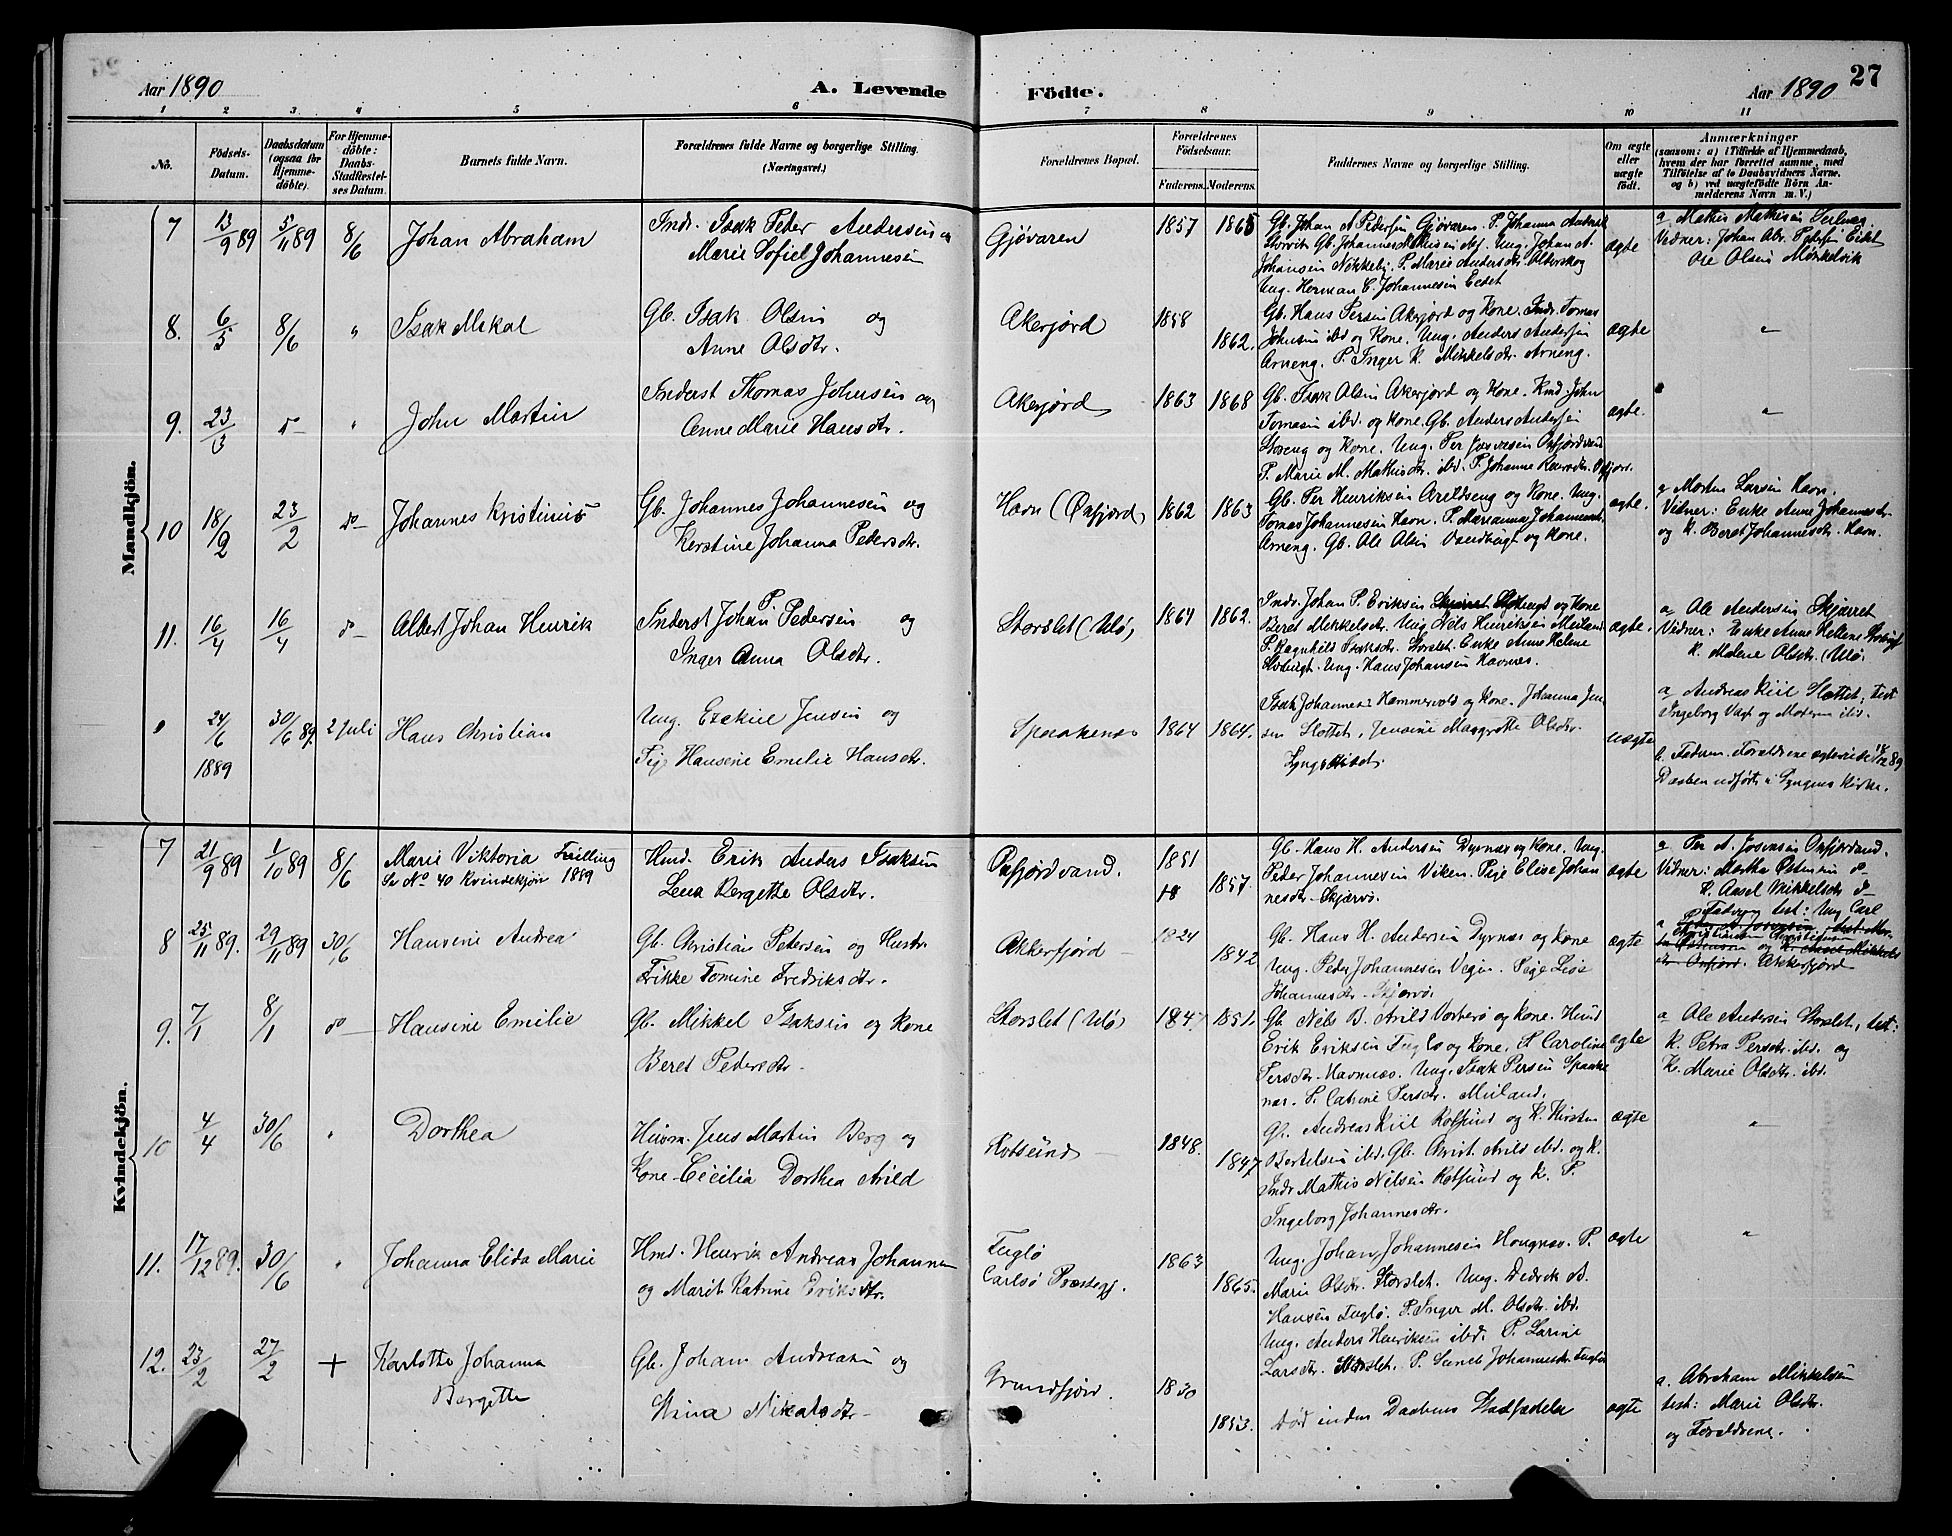 Aar 1890
A. Levende
Födte.
Aar 1890
27
1 2 3 4 5 6 7 8 9 10 11
No.
Födsels-Datum.
Daabsdatum (ogsaa for Hjemme-döbte).
For Hjemme-döbte: Daabs-Stadfæstel-ses Datum.
Barnets fulde Navn.
Forældrenes fulde Navne og borgerlige Stilling. (Næringsvei.)
Forældrenes Bopæl.
Forældrenes Födselsaar.
Faderens. Moderens.
Faddernes Navne og borgerlige Stilling.
Om ægte eller uægte födt.
Anmærkninger
(saasom: a) i Tilfælde af Hjemmedaab, hvem der har forrettet samme, med Tilföielse af to Daabsvidners Navne. og b) ved uægtefödte Börn An-melderens Navn m. V.)
Mandkjön.
7 13/9 89 5/11 89 8/6 Johan Abraham
Indr. Isak Peter Andersen og
Marie Sofie Johannesen
Gjövaren 1857 1865
Gb. Johan A Pedersen Gjövaren. P. Johanna
Johansen Nikkeby. P. Marie Andersdtr.
Ung. Herman C. Johannesen Eidet
ægte
Vidner: Johan Abr. Petersen
Ole Olsen Mörkelvik
8. 6/5 8/6 " Isak Mikal
Gb. Isak Olsen og
Anne Olsdtr.
Akerjord 1858 1862.
Gb. Hans Persen Akerjord og Kone. Indr. Tomas
Johnsen ibd og Kone. Ung. Anders Andersen
Arneng. P. Inger K. Mikkelsdtr. Arneng.
ægte "
9. 23/3 do " John Martin
Inderst Thomas Johnsen og
Anne Marie Hansdtr.
Akerjord 1863 1868
Gb. Isak Olsen Akerjord og Kone. Kmd. John
Tomasen ibd. og Kone. Gb. Anders Andersen
Storeng og Kone. Ung. Per
P. Marie M. Mathisdtr. ibd. P. Johanne
ægte "
10 18/2 23/2 do Johannes Kristinus
Gb. Johannes Johannesen og
Kerstine Johanna Pedersdtr.
Havn (Oxfjord) 1862 1863
Gb. Per Henriksen og Kone. Ung.
Tomas Johannesen Havn. P. Marianna Johannesdtr.
Arneng. Gb. Ole Olsen og Kone.
ægte.
a Morten Larsen Havn.
Vidner: Enke Anne Johannesdtr
og K. Beret Johannesdtr. Havn.
11. 16/4 16/4 do Albert Johan Henrik
Inderst Johan P. Pedersen og
Inger Anna Olsdtr.
Storslet (Ulö) 1864 1862.
Indr. Johan P. Eriksen og Kone
Beret Mikkelsdtr. Ung. Nels Henriksen Meiland
P. Ragnhild Isaksdtr. Storslet. Enke Anne Helene
Ung. Hans Johansen Havnes.
ægte.
a Ole Andersen Skjarret
Vidner: Enke Anne Hellene
K. Malene Olsdtr. (Ulö)
24/6 1889 30/6 89. 2 Juli Hans Christian
Ung. Ezekiel Jensen og
Pige Hansene Emelie Hansdtr.
Spaakenæs 1864 1864.
Isak Johannes Hammervold og Kone. Johanna Jen
sen Slottet, Jensine Margrethe Olsdtr.
Lyngseidet.
uægte
a Andreas Kiil Slottet, test
Ingeborg Vagt og Moderen ibd.
b. Faderen. Forældrene ægteviede 89
Daaben udfört i Lyngens Kirke.
Kvindekjön.
7 21/9 89 1/10 89 8/6 Marie Viktoria Tvilling
Se No 40 Kvindekjön 1889
Hmd. Erik Anders Isaksen
Lena Bergette Olsdtr.
Oxfjordvand. 1851 18 1857.
Gb. Hans H. Andersen Dyrnæs og Kone. Ung.
Peder Johannesen Viken. Pige Elise Johan
nesdtr. Skjervö.
ægte
a Per A. Josensen Oxfjordvand.
Vidner: Martha Petersen do
K. Aasel Mikkelsdtr do
8 25/11 89. 29/11 89 30/6 Hansine Andrea
Gb. Christian Petersen og Hustr.
Fikke Tomine Fredriksdtr.
Akkerfjord 1824 1842
Gb. Hans H. Andersen Dyrnæs og Kone
Ung. Peder Johannesen Vegen. Pige Lise
Johannesdtr. Skjervö.
ægte
Akkerfjord
9. 7/1 8/1 do Hansine Emilie
Gb. Mikkel Isaksen og Kone
Beret Pedersdtr.
Storslet (Ulö) 1847 1851.
Gb. Nils B. Arild Vorterö og Kone. Hmd
Erik Eriksen Fuglö og Kone. P. Caroline
Persdtr. Havnnæs. Ung. Isak Persen Spaake
næs. P. Catrine Persdtr. Meiland.
ægte
a Ole Andersen Storslet, test:
K. Petra Persdtr. ibd. og
K. Marie Olsdtr. ibd.
10 4/4 30/6 " Dorthea
Huusm. Jens Martin Berg og
Kone Cecilia Dorthea Arild
Rotsund 1848. 1847
Gb. Andreas Kiil Rotsund og K. Kirsten
Bertelsen ibd. Gb. Christ. Arild ibd. og K.
Indr Mathis Nilsen Rotsund og K. P.
Ingeborg Johannesdtr.
ægte "
11. 17/12 89. 30/6 " Johanna Elida Marie
Hmd. Henrik Andreas Johannes
og Marit Katrine Eriksdtr.
Fuglö
Carlsö Præstegj. 1863 1865.
Ung. Johan Johannesen Hougnæs. P.
Marie Olsdtr. Storslet. Ung. Dedrik A.
Hansen Fuglö. P. Inger M. Olsdtr. ibd.
Ung. Anders Henriksen ibd. P. Larine
Larsdtr. Storslet. P. Johannesdtr. Fuglö
ægte "
12. 23/2 27/2 + Karlotte Johanna
Bergitte
Gb. Johan Andreasen og
Stina Nikolodtr
Grundfjord. 1830 1853.
Död inden Daabens Stadfædelse
ægte
a. Abraham Mikkelsen
test: Marie Olsdtr.
og Forældrene.